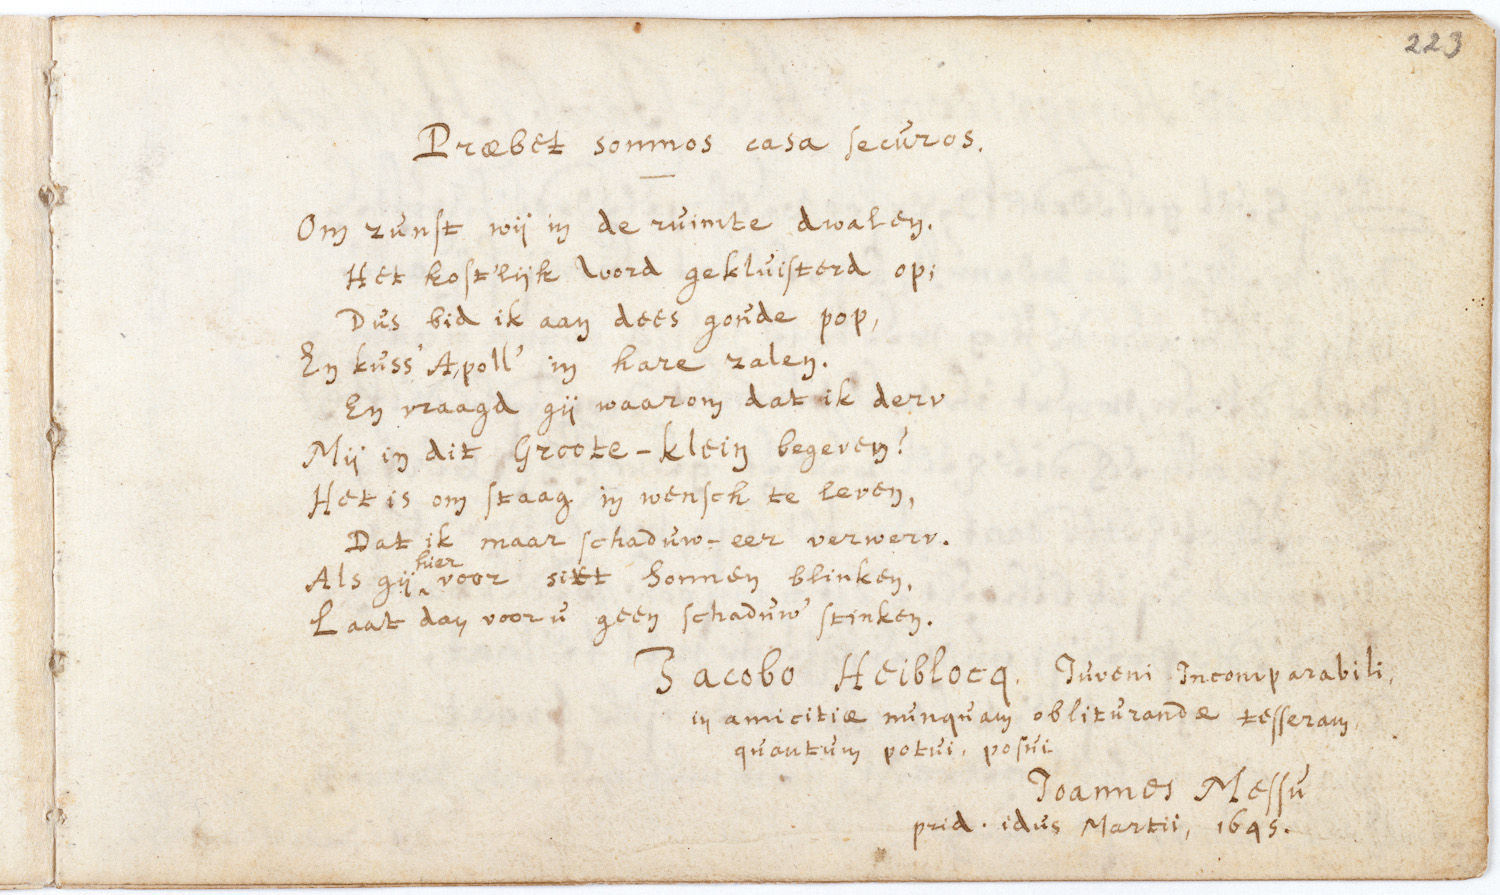 223
Præbet somnos casa securos.
Om zunst wij in de ruimte dwalen.
Het kost'lijk word gekluisterd op;
Dus bid ik aan dees goude pop,
En kuss' Apoll' in hare zalen.
En vraagd gij waarom dat ik derv
Mij in dit Groote-klein begeven?
Het is om staag in wensch te leven,
Dat ik maar schaduw-eer verwerv.
Als gij hier voor siet Sonnen blinken,
Laat dan voor u geen schaduw' stinken.
Jacobo Heiblocq. Juveni Incomparabili,
in amicitiæ nunquam obliturandæ tesseram,
quantum potui, posui
Joannes Messu
prid. idus Martii, 1645.